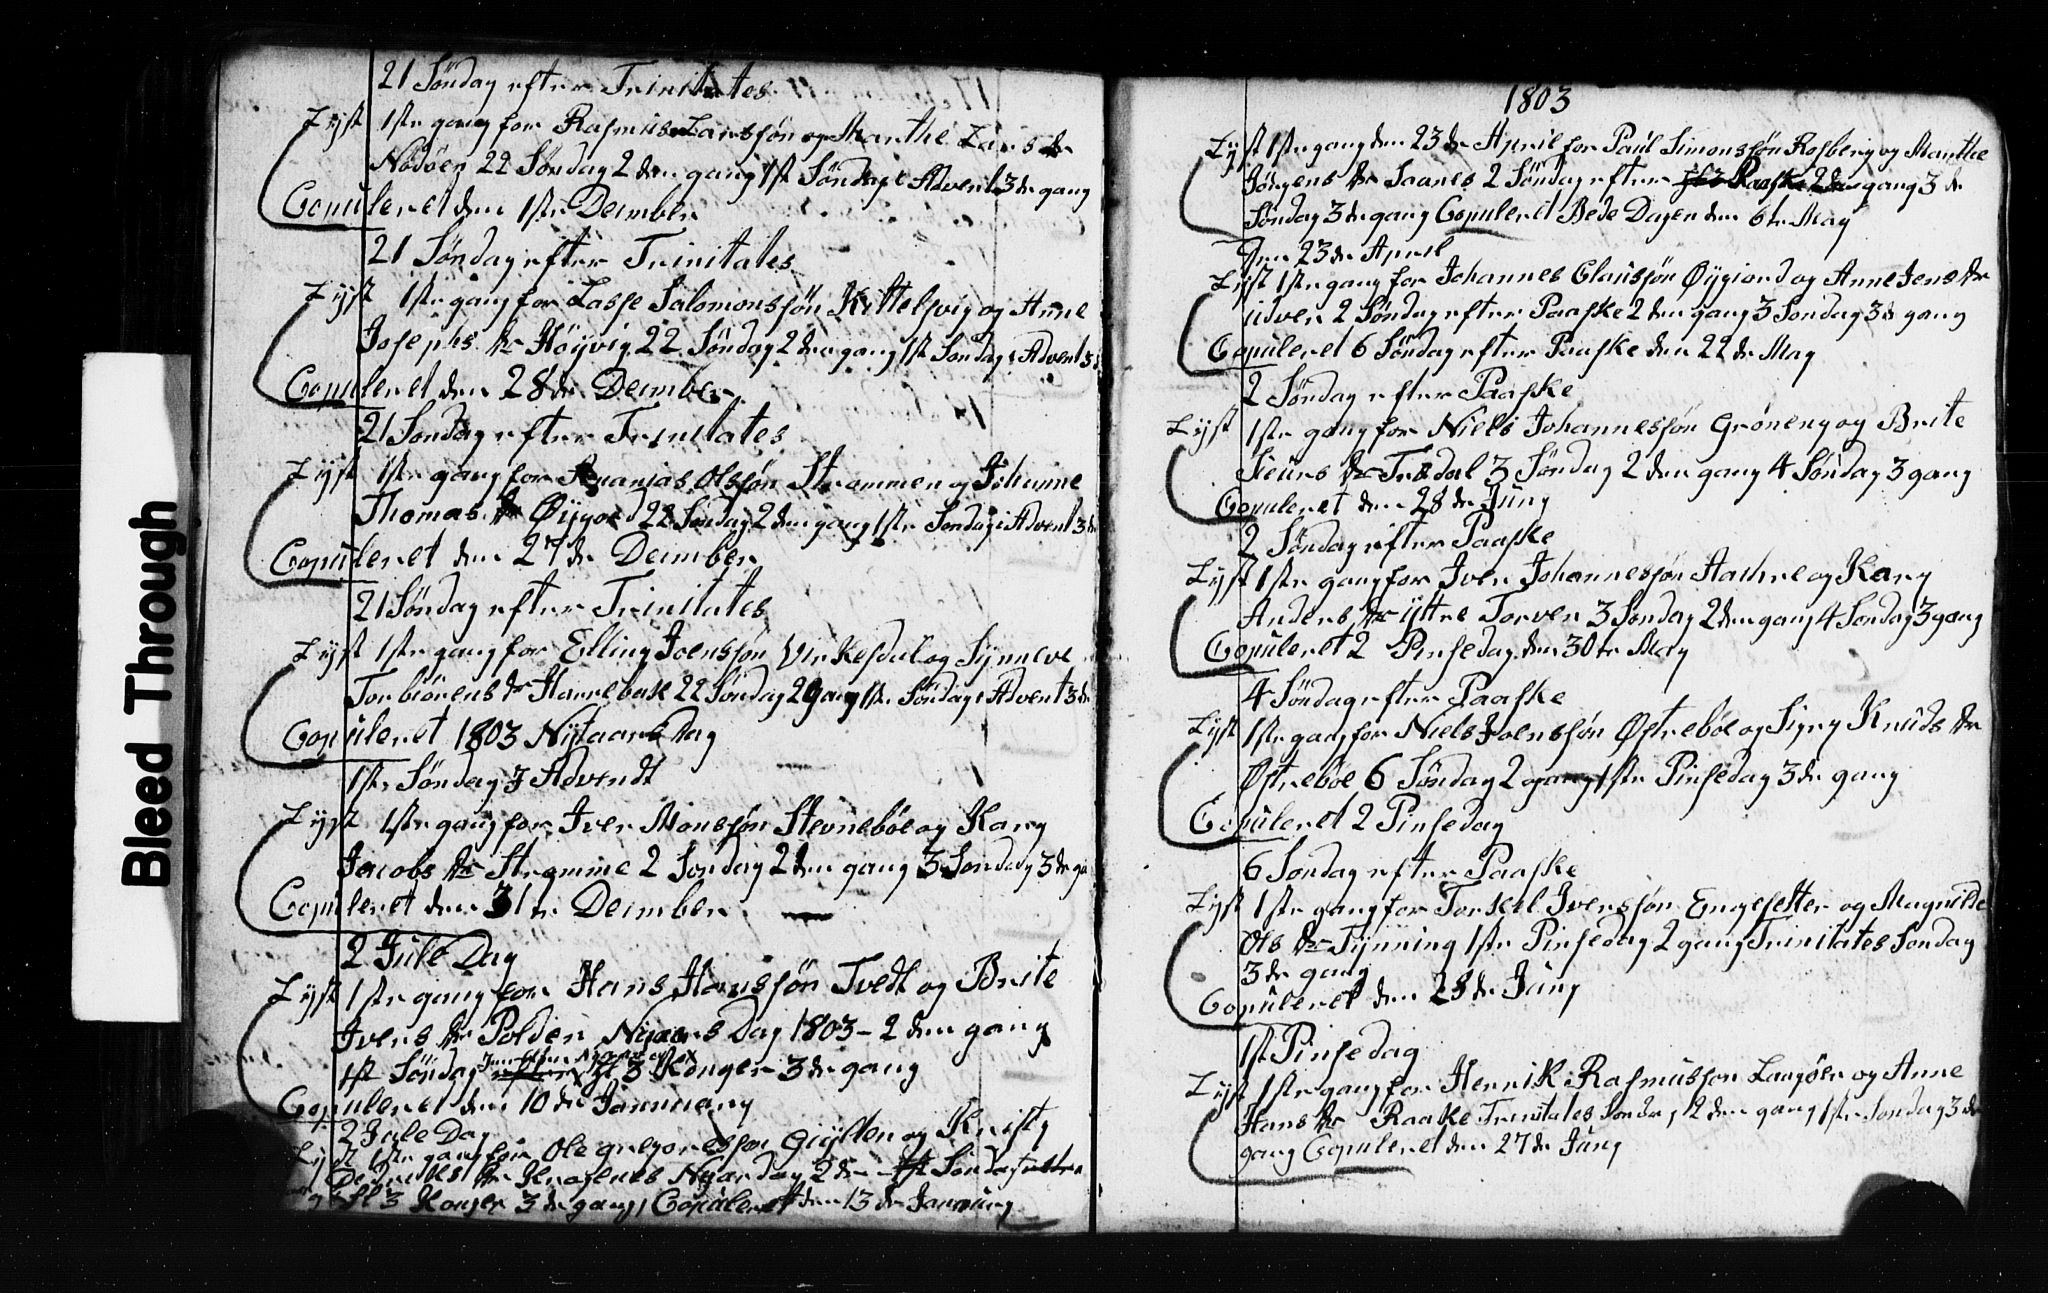 21 Söndag efter Trinitates
Lyst 1ste gang for Rasmus Larssøn og Marthe Lars dr
Nödöen 22 Söndag 2den gang 1st Söndag i Advent 3de gang
Copuleret den 1ste Decmber
21 Söndag efter Trinitates
Lyst 1ste gang for Lasse Salomonssøn Kittelsvig og Anne
Josephs dr Höyvig 22 Söndag 2den gang 1st Söndag i Advent 3d
Copuleret den 28de Decmber
21 Söndag efter Trinitates
Lyst 1ste gang for Ananias Olssøn Strammen og Johanne
Thomas dr Øygord 22 Söndag 2den gang 1ste Söndag i Advent 3de
Copuleret den 27de Decmber
21 Söndag efter Trinitates
Lyst 1ste gang for Elling Joenssøn Virkesdal og Synneve
Torbiörens dr Harrebak 22 Söndag 2 gang 1ste Söndag i Advent 3de
Copuleret 1803 Nytaars Dag
1ste Söndag J Advendt
Lyst 1ste gang for Iver Monssøn Stevneböe og Kary
Jacobs dr Stramme 2 Söndag 2den gang 3 Söndag 3de ga
Copuleret den 31te Decmber
2 Jule Dag
Lyst 1ste gang for Hans Hanssøn Tvedt og Brite
Ivers dr Polden Nyaars Dag 1803 - 2den gang
1st Söndag efter Hl 3 Konger 3de gang
Copuleret den 10de Januuary
2 Jule Dag
Lyst 1ste gang for Ole Gregoressøn Giylten og Kristy
Didriks dr Hrafsnes Nyaardag 2de 1st Söndag efter
Hl 3 Konger 3de gang Copuleret den 13de Januuary
1803
Lyst 1ste gang den 23de April for Paul Simonssøn Rosberg og Marthe
Jörgens dr Saanes 2 Söndag efter Paaske 2den gang 3de
Söndag 3de gang Copuleret Bede Dagen den 6te May
Den 23de April
Lyst 1ste gang for Johannes Claussøn Øygiord og Anne Jens dr
udven 2 Söndag efter Paaske 2den gang 3 Söndag 3de gang
Copuleret 6 Söndag efter Paaske den 22de May
2 Söndag efter Paaske
Lyst 1ste gang for Niels Johannessøn Gröneng og Brite
Siurs dr Tredal 3 Söndag 2den gang 4 Söndag 3 gang
Copuleret den 28de Juny
2 Söndag efter Paaske
Lyst 1ste gang for Iver Johannessøn Aachre og Kary
Anders dr yttre Torven 3 Söndag 2den gang 4 Söndag 3 gang
Copuleret 2 Pinsedag den 30te May
4 Söndag efter Paaske
Lyst 1ste gang for Niels Joenssøn Østreböe og Sigry Knuds dr
Østreböe 6 Söndag 2 gang 1ste Pinsedag 3de gang
Copuleret 2 Pinsedag
6 Söndag efter Paaske
Lyst 1ste gang for Torkel Iverssøn Engesetter og Magnilde
Ols dr Tynning 1ste Pinsedag 2 gang Trinitates Söndag
3de gang
Copuleret den 28de Juny
1st Pinsedag
Lyst 1ste gang for Henrik Rasmussøn Langöen og Anne
Hans dr Raake Trinitates Söndag 2den gang 1ste Söndag 3de
gang Copuleret den 27de Juny
Bleed Through